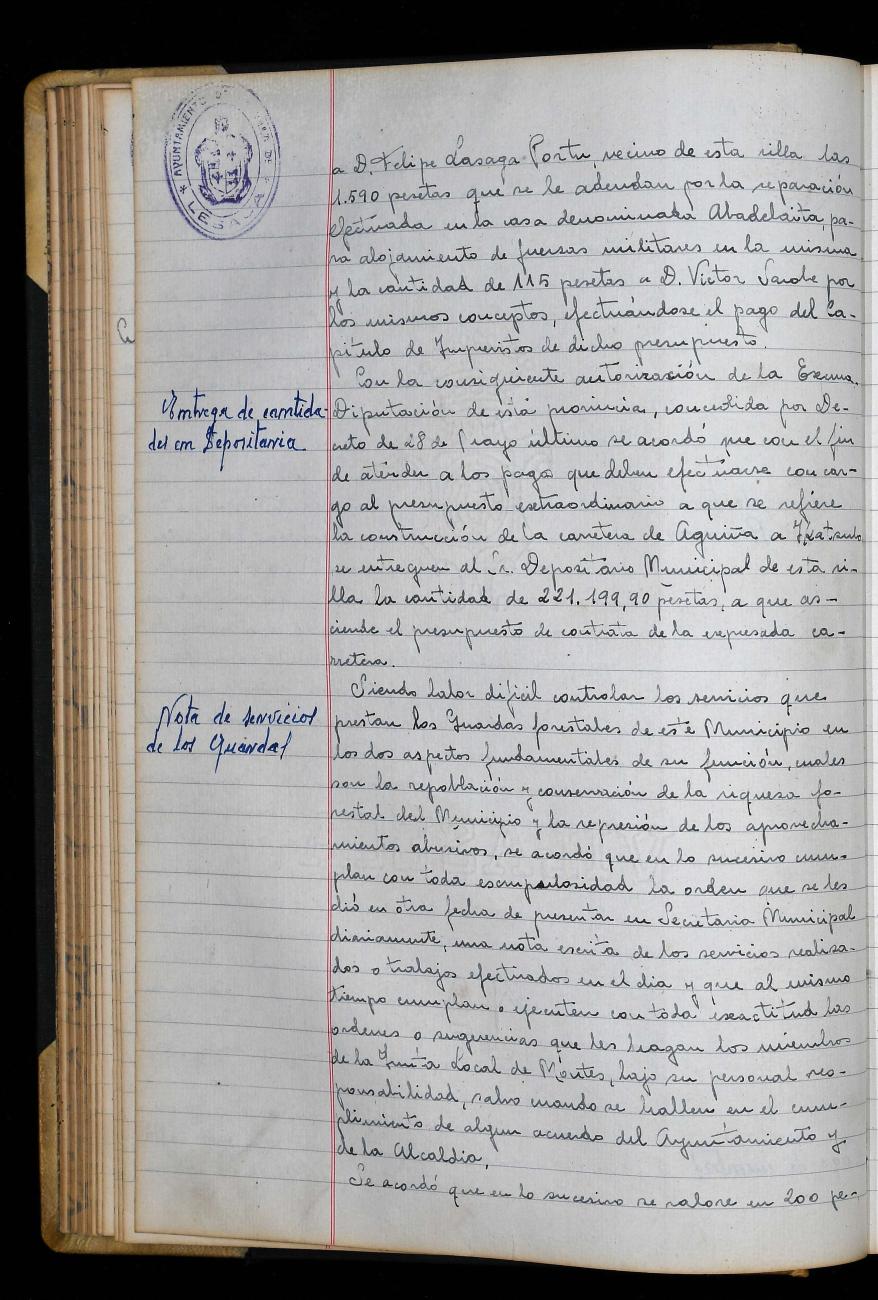 AYUNTAMIENTO DE
LESACA
a D. Felipe Lasaga Portu, vecino de esta villa las
1.590 pesetas que se le adeudan por la reparación
efectuada en la casa denominada Abadelaita, pa-
ra alojamiento de fuerzas militares en la misma
y la cantidad de 115 pesetas a D. Victor Sarobe por
los mismos conceptos, efectuándose el pago del Ca-
pitulo de Imprevistos de dicho presupuesto.
Con la consiguiente autorización de la Excma.
Entrega de cantida-
des en Depositaria
Diputación de esta provincia, concedida por De-
creto de 28 de Mayo último se acordó que con el fin
de atender a los pagos que deben efectuarse con car-
go al presupuesto extraordinario a que se refiere
la construcción de la carretera de Aguiña a
se entreguen al Sr. Depositario Municipal de esta vi-
lla la cantidad de 221.199,90 pesetas, a que as-
ciende el presupuesto de contrata de la expresada ca-
rretera.
Siendo labor dificil controlar los servicios que
Nota de servicios
de los Guardas
prestan los Guardas forestales de este Municipio en
los dos aspectos fundamentales de su función, cuales
son la repoblación y conservación de la riqueza fo-
restal del Municipio y la represión de los aprovecha-
mientos abusivos, se acordó que en lo sucesivo cum-
plan con toda escrupulosidad la orden que se les
dió en otra fecha de presentar en Secretaria Municipal
diariamente, una nota escrita de los servicios realiza-
dos o trabajos efectuados en el dia y que al mismo
tiempo cumplan o ejecuten con toda exactitud las
ordenes o sugerencias que les hagan los miembros
de la Junta Local de Montes, bajo su personal res-
ponsabilidad, salvo cuando se hallen en el cum-
plimiento de algun acuerdo del Ayuntamiento y
de la Alcaldia.
Se acordó que en lo sucesivo se valore en 200 pe-